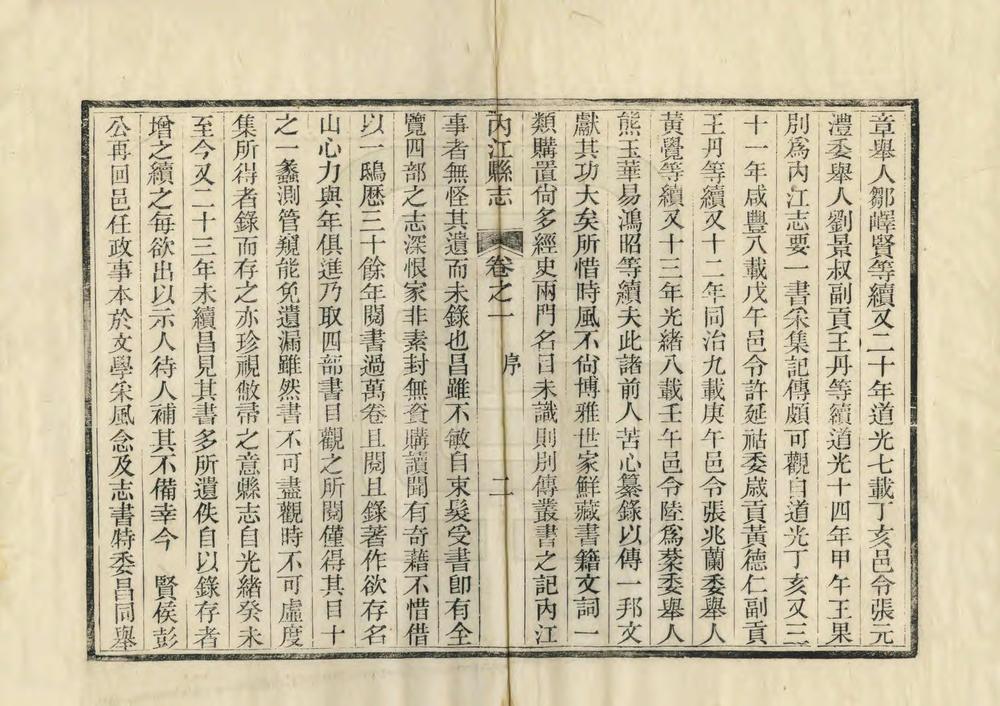 章舉人鄒嶧賢等續又二十年道光七載丁亥邑令張元
澧委舉人劉景叔副貢王丹等續道光十四年甲午王果
別爲內江志要一書采集記傳頗可觀自道光丁亥又三
十一年咸豐八載戊午邑令許延祜委歲貢黃德仁副貢
王丹等續又十二年同治九載庚午邑令張兆蘭委舉人
黃覺等續又十三年光緒八載壬午邑令陸爲棻委舉人
熊玉華易鴻昭等續夫此諸前人苦心纂錄以傳一邦文
獻其功大矣所惜時風不尙博雅世家鮮藏書籍文詞一
類購置尙多經史兩門名目未識則別傳叢書之記內江
內江縣志 卷之一 序 二
事者無怪其遺而未錄也昌雖不敏自束髮受書卽有全
覽四部之志深恨家非素封無資購讀聞有奇藉不惜借
以一鴟歷三十餘年閱書過萬卷且閱且錄著作欲存名
山心力與年俱進乃取四部書目觀之所閱僅得其目十
之一蠡測管窺能免遺漏雖然書不可盡觀時不可虛度
集所得者錄而存之亦珍視敝帚之意縣志自光緒癸未
至今又二十三年未續昌見其書多所遺佚自以錄存者
增之續之每欲出以示人待人補其不備幸今 賢侯彭
公再回邑任政事本於文學采風念及志書特委昌同舉